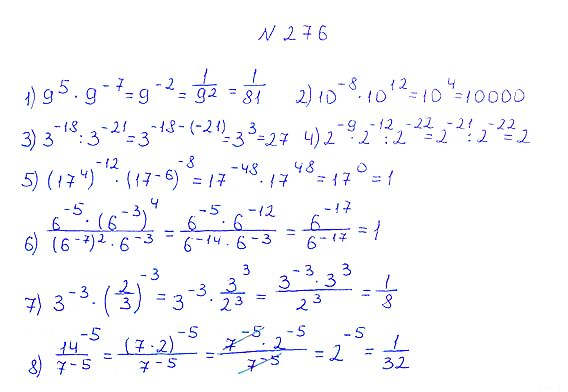 N 276
1) 9^5 · 9^-7 = 9^-2 = 1/9^2 = 1/81 2) 10^-8 · 10^12 = 10^4 = 10000
3) 3^-18 : 3^-21 = 3^-18-(-21) = 3^3 = 27 4) 2^-9 · 2^-12 : 2^-22 = 2^-21 : 2^-22 = 2
5) (17^4)^-12 · (17^-6)^-8 = 17^-48 · 17^48 = 17^0 = 1
6) 6^-5 · (6^-3)^4 / (6^-7)^2 · 6^-3 = 6^-5 · 6^-12 / 6^-14 · 6^-3 = 6^-17 / 6^-17 = 1
7) 3^-3 · (2/3)^-3 = 3^-3 · 3^3/2^3 = 3^-3 · 3^3 / 2^3 = 1/8
8) 14^-5 / 7^-5 = (7·2)^-5 / 7^-5 = 7^-5 · 2^-5 / 7^-5 = 2^-5 = 1/32